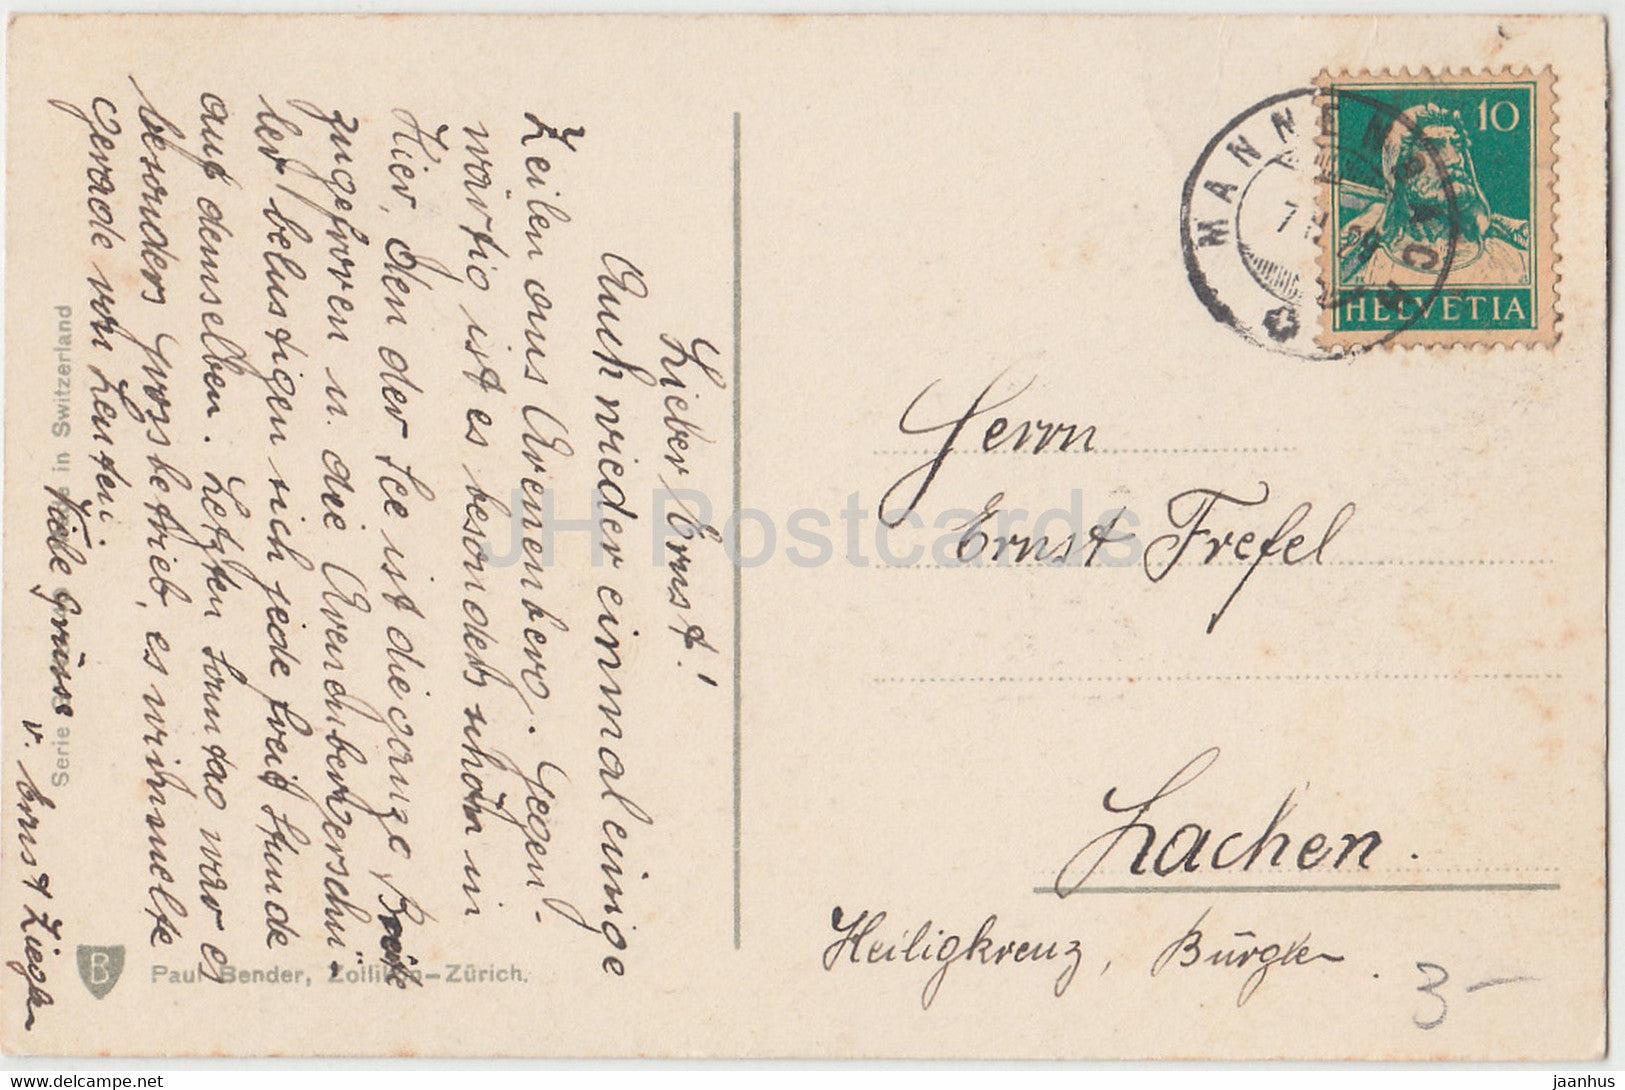 Lieber Ernst!
Auch wieder einmal einige
Zeilen aus Arenenberg. Gegen-
wärtig ist es besonders schön in
Hier, den der See ist die ganze Breite
zugefroren u. die Arenenberger
ler belustigen sich jede frei Stunde
auf demselben. Letzten Sonntag war es
besonders grosbetrieb, es wimmelte
gerade von Leuten
Viele Grüsse
v. Ernst Ziegler
Serie in Switzerland
B
Paul Bender, Zollikon-Zürich.
MANNENBACH
7
29
10
HELVETIA
Herrn
Ernst Frefel
Lachen.
Heiligkreuz, Bürglen.
3-
JH Postcards
delcampe.net
jaanhus